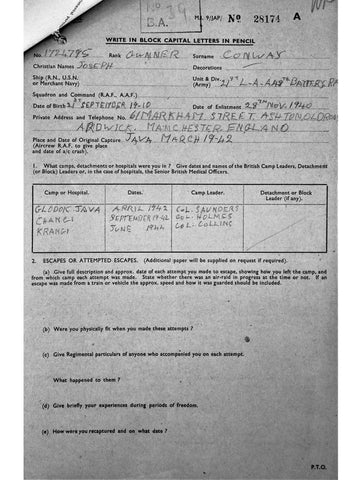 No 39
B.A.
M.I. 9/JAP/ No 28174 A
WRITE IN BLOCK CAPITAL LETTERS IN PENCIL
No. 1724795 Rank GUNNER Surname CONWAY
Christian Names JOSEPH Decorations
Ship (R.N., U.S.N. or Merchant Navy) Unit & Div. (Army) 21ST L.A.A. BATTERY R.A
Squadron and Command (R.A.F., A.A.F.)
Date of Birth SEPTEMBER 1910 Date of Enlistment 28TH NOV. 1940
Private Address and Telephone No. 61 MARKHAM STREET ASHTON OLD ROAD
ARDWICK. MANCHESTER ENGLAND
Place and Date of Original Capture JAVA MARCH 1942
(Aircrew R.A.F. to give place and date of a/c crash).
1. What camps, detachments or hospitals were you in ? Give dates and names of the British Camp Leaders, Detachment
(or Block) Leaders or, in the case of hospitals, the Senior British Medical Officers.
Camp or Hospital. Dates. Camp Leader. Detachment or Block Leader (if any).
GLODOK JAVA APRIL 1942 COL. SAUNDERS
CHANGI SEPTEMBER 1942 COL. HOLMES
KRANGI JUNE 1944 COL. COLLINS
2. ESCAPES OR ATTEMPTED ESCAPES. (Additional paper will be supplied on request if required).
(a) Give full description and approx. date of each attempt you made to escape, showing how you left the camp, and
from which camp each attempt was made. State whether there was an air-raid in progress at the time or not. If an
escape was made from a train or vehicle the approx. speed and how it was guarded should be included.
(b) Were you physically fit when you made these attempts ?
(c) Give Regimental particulars of anyone who accompanied you on each attempt.
What happened to them ?
(d) Give briefly your experiences during periods of freedom.
(e) How were you recaptured and on what date ?
P.T.O.